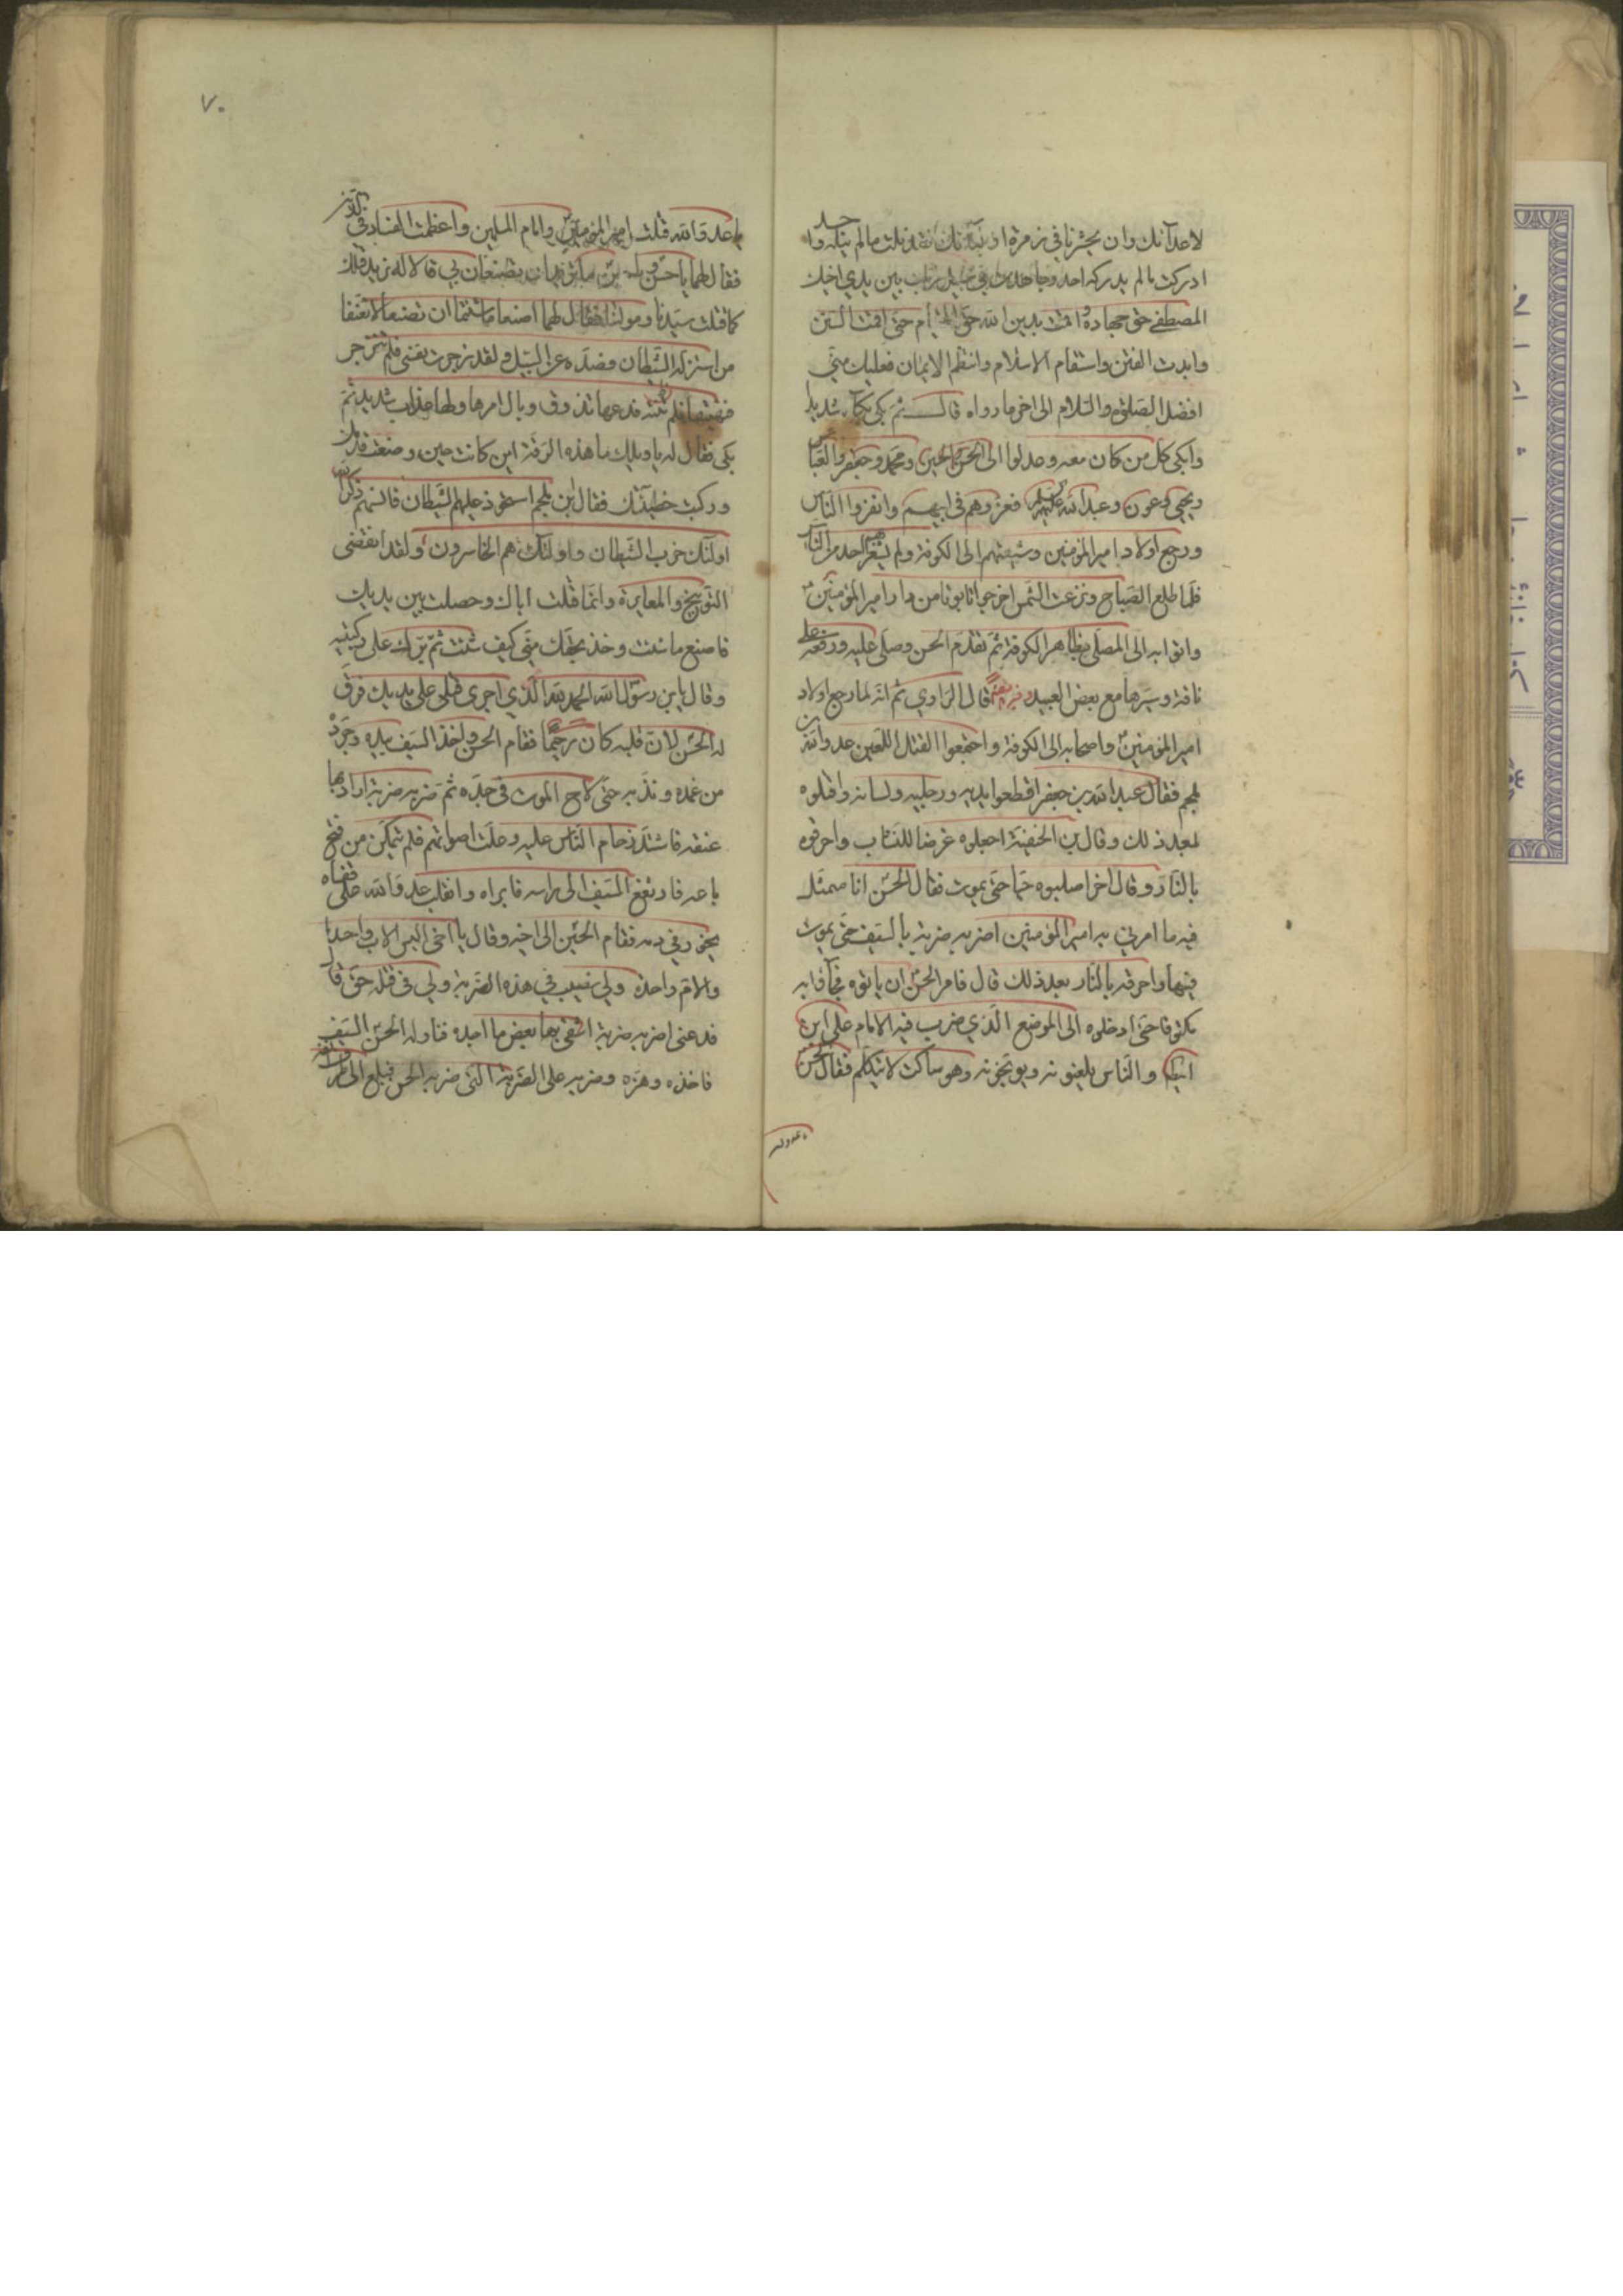 لاعدآئك وان يحشرنا في زمرة اوليآئك فقد نلت مالم ينله احد و
ادركت مالم يدركه احد وجاهدت في سبيل ربك بين يدي اخيك
المصطفى حق جهاده واقمت بدين الله حتى اقمت السنن
وابدت الفتن واستقام الاسلام وانتظم الايمان فعليك مني
افضل الصلوة والسلام الى اخر مارواه قال ثم بكى بكآء شديدا
وابكى كل من كان معه وعدلوا الى الحسن والحسين ومحمد وجعفر والعباس
ويحيى وعون وعبد الله عليهم السلم فعزوهم في ابيهم وانفزوا الناس
ورجع اولاد امير المؤمنين وشيعتهم الى الكوفة ولم يشعر احد من الناس
فلما طلع الصباح وبزغت الشمس اخرجوا تابوتا من دار امير المؤمنين
واتوا به الى المصلى بظاهر الكوفة ثم تقدم الحسن وصلى عليه ورفعه على
ناقة وسيرها مع بعض العبيد قال الراوي ثم انه لما رجع اولاد
امير المؤمنين واصحابه الى الكوفة واجتمعوا لقتل اللعين عدو الله ابن
ملجم فقال عبد الله بن جعفر اقطعوا يديه ورجليه ولسانه واقتلوه
بعد ذلك وقال بن الحنفية اجعلوه غرضا للنشاب واحرقوه
بالنار وقال اخر اصلبوه حيا حتى يموت فقال الحسن انا ممتثل
فيه ما امرني به امير المؤمنين اضربه ضربة بالسيف حتى يموت
فيها واحرقه بالنار بعد ذلك قال فامر الحسن ان ياتوه به فجآؤا به
مكتوفا حتى ادخلوه الى الموضع الذي ضرب فيه الامام علي ابن
ابيطالب والناس يلعنونه ويوبخونه وهو ساكت لا يتكلم فقال الحسن
٧٠
يا عدو الله قتلت امير المؤمنين وامام المسلمين واعظمت الفساد في الدين
فقال لهما يا حسن ويا حسين ما تريدان تصنعان بي قالا له نريد قتلك
كما قتلت سيدنا ومولانا فقال لهما اصنعا ما شئتما ان تصنعا لا تعنفا
من استزله الشيطان فصده عن السبيل ولقد زجرت نفسي فلم تنزجر
ونهيتها فلم تنته فدعها تذوق وبال امرها ولها عذاب شديد ثم
بكى فقال له يا ويلك ما هذه الرقة اين كانت حين وضعت قدمك
وركبت خطيئتك فقال ابن ملجم استحوذ عليهم الشيطان فانسيهم ذكر الله
اولئك حزب الشيطان واولئك هم الخاسرون ولقد انقضى
التوبيخ والمعايرة وانما قتلت اباك وحصلت بين يديك
فاصنع ما شئت وخذ بحقك مني كيف شئت ثم برك على ركبتيه
وقال يابن رسول الله الحمد لله الذي اجرى قتلي على يديك فرق
له الحسن لان قلبه كان رحيما فقام الحسن واخذ السيف بيده وجرده
من غمده وندبه حتى لاح الموت في حده ثم ضربه ضربة اراد بها
عنقه فاشتد زحام الناس عليه وعلت اصواتهم فلم يتمكن من فتح
باعه فارتفع السيف الى راسه فابراه وانقلب عدو الله على قفاه
يخور في دمه فقام الحسين الى اخيه وقال يا اخي اليس الاب واحدا
والام واحدة ولي نصيب في هذه الضربة ولي في قتله حق قال
فدعني اضربه ضربة اشفي بها بعض ما اجده فناوله الحسن السيف
فاخذه وهزه وضربه على الضربة التي ضربه الحسن فبلغ الى طرف انفه